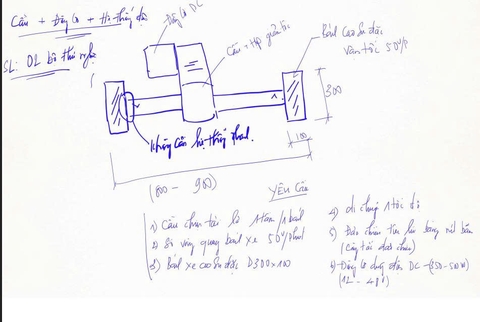 Cầu + Động cơ + Hệ thống
SL: 01 bộ thử nghiệm
Động cơ DC
Cầu + Hộp giảm tốc
Bánh cao su đặc
vận tốc 50v/p
300
100
Không cần hệ thống phanh.
(800 - 900)
YÊU CẦU
1) Cầu chịu tải là 1 tấn/1 bánh
2) Số vòng quay bánh xe 50v/phút
3) Bánh xe cao su đặc D300x100
4) di chuyển 1 tốc độ
5) Đảo chiều tiến lùi bằng nút bấm
(công tắc đảo chiều)
6) Động cơ dùng điện DC - (350-500W)
(12 - 48V)